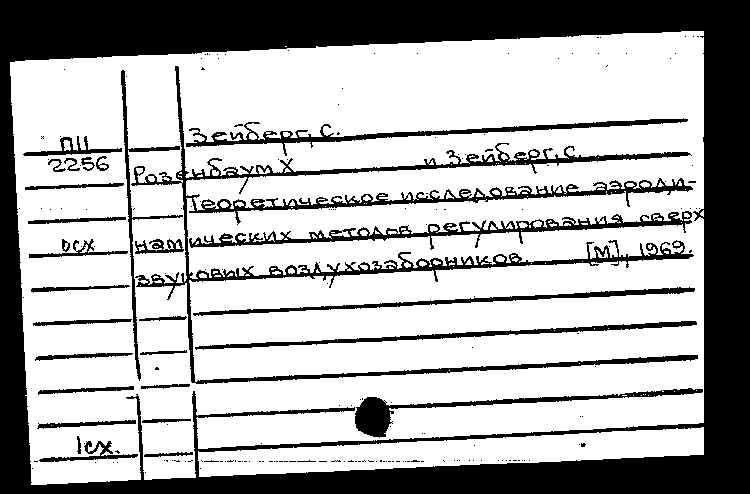 Зейберг, С.
ПII
2256
Розенбаум Х и Зейберг, С.
Теоретическое исследование аэроди-
осх
намических методов регулирования сверх
звуковых воздухозаборников. [М], 1969.
1сх.